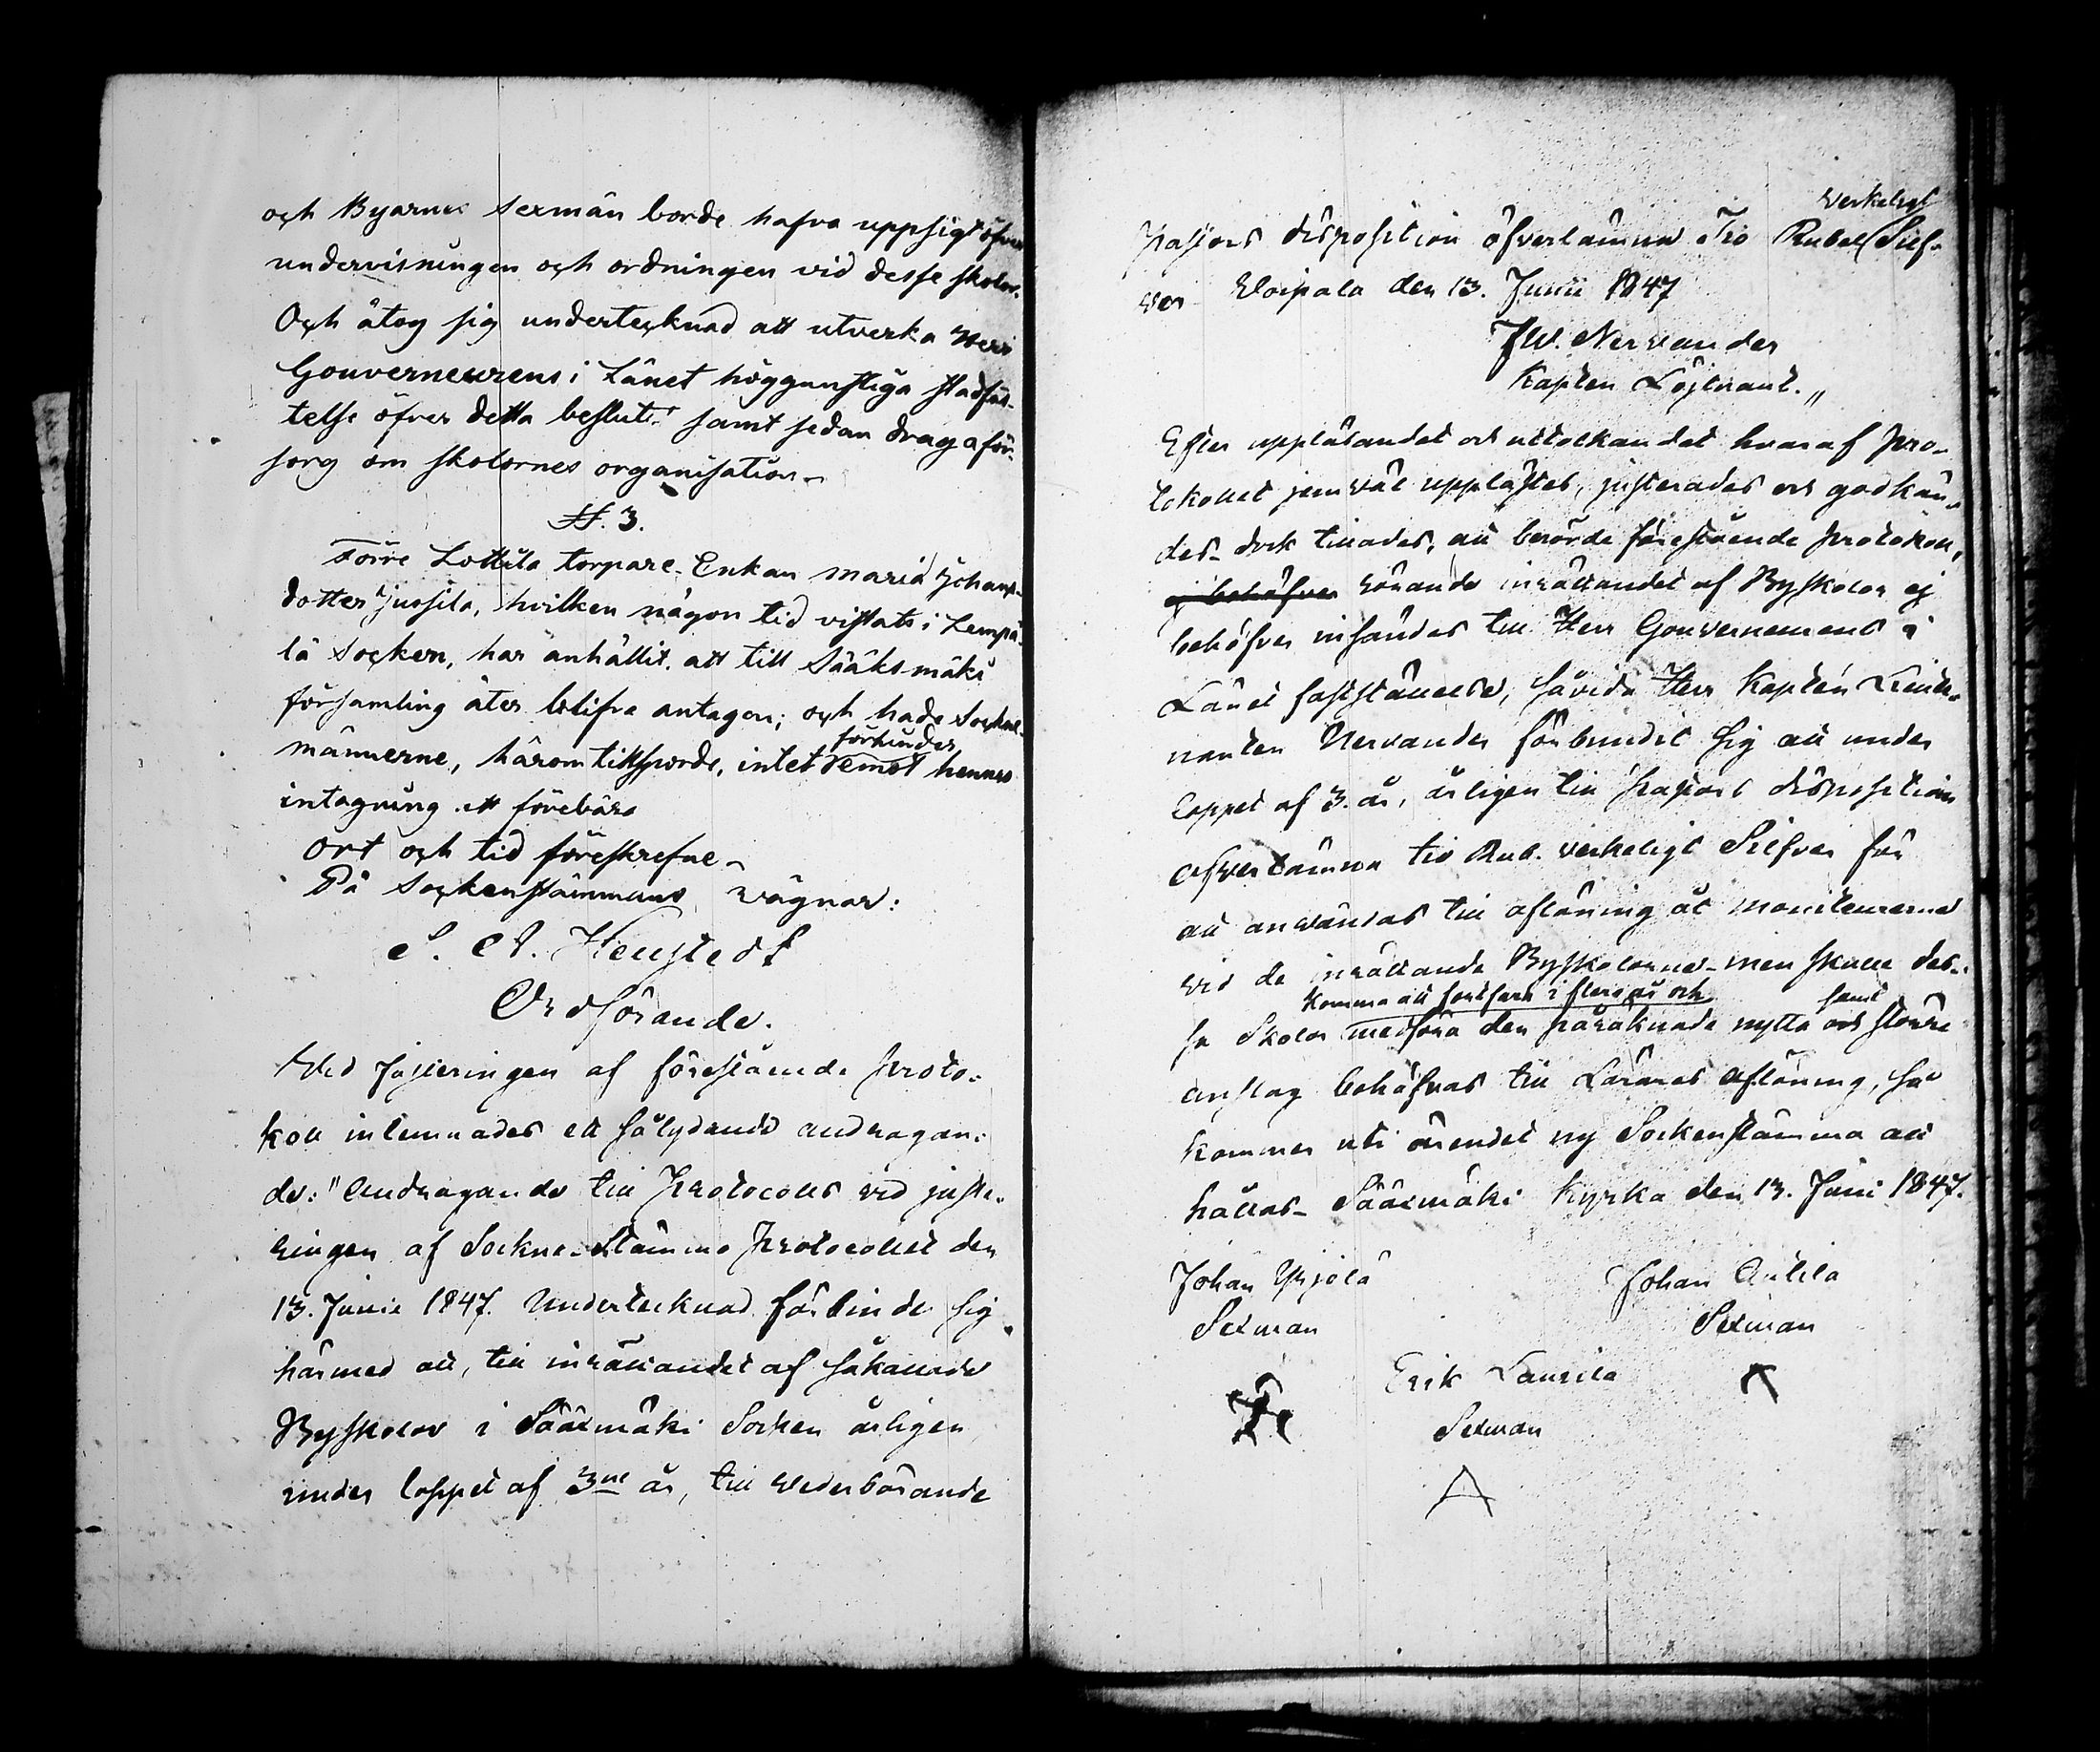 och Byarnes sexmän borde hafva uppsigt öfver
undervisningen och ordningen vid desse skolor.
Och åtog sig undertecknad att utverka Herr
Gouverneurens i Länet höggunstiga stadfäs-
telse öfver detta beslut, samt sedan draga för-
sorg om skolornes organisation
§. 3.
Förre Lottila torpare Enkan Maria Johans-
dotter Jussila, hvilken någon tid vistats i Lempä-
lä Socken, har anhållit, att till Sääksmäki
församling åter blifva antagen; och hade Sockne-
männerne, härom tillsporde, intet förhinder emot hennes
intagning att förebära
Ort och tid föreskrefne
På Sockenstämmans vägnar:
Ordförande.
Wid justeringen af förestående Proto-
koll inlemnades ett sålydande andragan-
de: "Andragande till Protocolls vid juste-
ringen af Sockne-Stämmo Protocollet den
13. Junii 1847. Undertecknad förbinder sig
härmed att, till inrättandet af såkallade
Byskolor i Sääxmäki Socken årligen
under loppet af 3ne år, till Wederbörande
Pastors disposition öfverlämna Tio Rubel verkeligt Silf-
ver Voipala den 13. Junii 1847
JW. Nervander
Kapten Löjtnant."
Efter uppläsandet och uttolkandet hvaraf Pro-
tokollet jemväl upplästes, justerades och godkän-
des dock tillades, att berörde förestående protokoll,
ej behöfver rörande inrättandet af Byskolor ej
behöfver insändas till Herr Gouverneurens i
Länet fastställelse, såvida Herr Kapten Lieute-
nanten Nervander förbundit sig att under
loppet af 3. år, årligen till Pastors disposition
öfverlämna tio Rub. verkeligt Silfver för
att användas till aflöning åt moniteurerne
vid de inrättande Byskolorne men skulle des-
komma att fortfara i flera år och samt
sa Skolor medföra den påräknade nytta och större
anslag behöfvas till Lärares aflöning, så
kommer uti ärendet ny Sockenstämma att
hållas Sääxmäki Kyrka den 13. Juni 1847.
Johan Yrjölä Johan Anttila
Sexman Sexman
Erik Laurila
Sexman